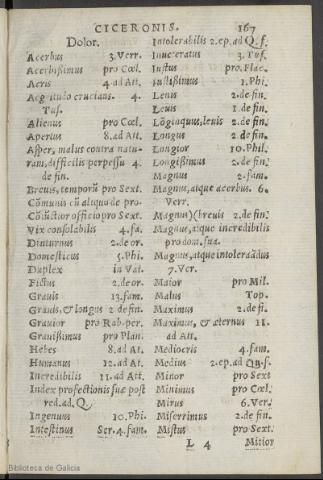 CICERONIS. 167
Dolor.
Acerbus 3. Verr.
Acerbißimus pro Cœl.
Acris 4. ad Att.
Aegritudo crucians. 4.
Tus.
Alienus pro Cœl.
Apertus 8. ad Att.
Asper, malus contra natu-
ram, difficilis perpessu 4.
de fin.
Breuis, temporũ pro Sext.
Cõmunis cũ aliquo de pro.
Cõiũctior officio pro Sext.
Vix consolabilis 4. fa.
Diuturnus 2. de or.
Domesticus 5. Phi.
Duplex in Vat.
Fictus 2. de or.
Grauis 13. fam.
Grauis, & longus 2 de fin.
Grauior pro Rab. per.
Grauißimus pro Plan.
Hebes 8. ad At.
Humanus 12. ad At.
Incredibilis 11. ad Att.
Index profectionis suæ post
red. ad. Q.
Ingenuus 10. Phi.
Intestinus Ser. 4. fam.
Intolerabilis 2. ep. ad Q. f.
Inueteratus 3. Tus.
Iustus pro. Flac.
Iustißimus 1. Phi.
Lenis 2. de fin.
Leuis 1. de fin.
Lõgiquus, leuis 2. de fin.
Longus 2 de fin.
Longior 10. Phil.
Longißimus 2. de fin.
Magnus 4. fam.
Magnus, atque acerbus. 6.
Verr.
Magnus)(breuis 2. de fin.
Magnus, atque incredibilis
pro dom. sua.
Magnus, atque intolerãdus
7. Ver.
Maior pro Mil.
Malus Top.
Maximus 2. de fi.
Maximus, & æternus 11.
ad Att.
Mediocris 4. fam.
Medius 2. ep. ad Qu. f.
Minor pro Sext
Minimus pro Cœl.
Mirus 6. Ver.
Miserrimus 2. de fin.
Mistus pro Sext.
L 4 Mitior
Biblioteca de Galicia